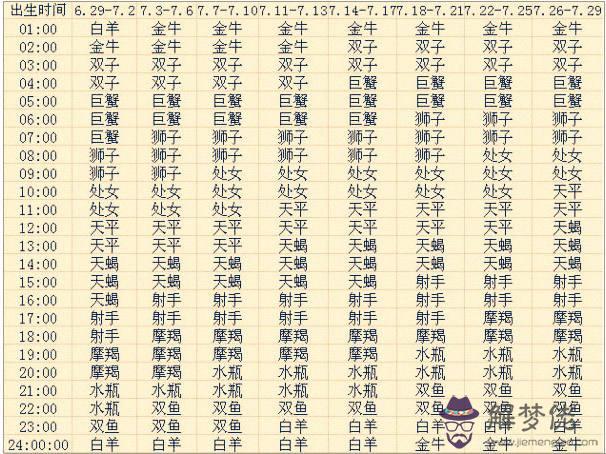 出生时间 6.29-7.2 7.3-7.6 7.7-7.10 7.11-7.13 7.14-7.17 7.18-7.21 7.22-7.25 7.26-7.29
01:00 白羊 金牛 金牛 金牛 金牛 金牛 金牛 金牛
02:00 金牛 金牛 金牛 金牛 双子 双子 双子 双子
03:00 双子 双子 双子 双子 双子 双子 双子 双子
04:00 双子 双子 双子 双子 巨蟹 巨蟹 巨蟹 巨蟹
05:00 巨蟹 巨蟹 巨蟹 巨蟹 巨蟹 巨蟹 巨蟹 巨蟹
06:00 巨蟹 巨蟹 巨蟹 巨蟹 巨蟹 狮子 狮子 狮子
07:00 巨蟹 狮子 狮子 狮子 狮子 狮子 狮子 狮子
08:00 狮子 狮子 狮子 狮子 狮子 狮子 处女 处女
09:00 狮子 狮子 处女 处女 处女 处女 处女 处女
10:00 处女 处女 处女 处女 处女 处女 处女 天平
11:00 处女 处女 处女 天平 天平 天平 天平 天平
12:00 天平 天平 天平 天平 天平 天平 天平 天蝎
13:00 天平 天平 天平 天蝎 天蝎 天蝎 天蝎 天蝎
14:00 天蝎 天蝎 天蝎 天蝎 天蝎 天蝎 天蝎 天蝎
15:00 天蝎 天蝎 天蝎 天蝎 天蝎 射手 射手 射手
16:00 天蝎 射手 射手 射手 射手 射手 射手 射手
17:00 射手 射手 射手 射手 射手 射手 摩羯 摩羯
18:00 射手 摩羯 摩羯 摩羯 摩羯 摩羯 摩羯 摩羯
19:00 摩羯 摩羯 摩羯 摩羯 摩羯 水瓶 水瓶 水瓶
20:00 摩羯 摩羯 水瓶 水瓶 水瓶 水瓶 水瓶 水瓶
21:00 水瓶 水瓶 水瓶 水瓶 水瓶 双鱼 双鱼 双鱼
22:00 水瓶 双鱼 双鱼 双鱼 双鱼 双鱼 双鱼 双鱼
23:00 双鱼 双鱼 双鱼 白羊 白羊 白羊
24:00:00 白羊 白羊 白羊 白羊 白羊 金牛 金牛 金牛
解梦佬
www.jiemeng